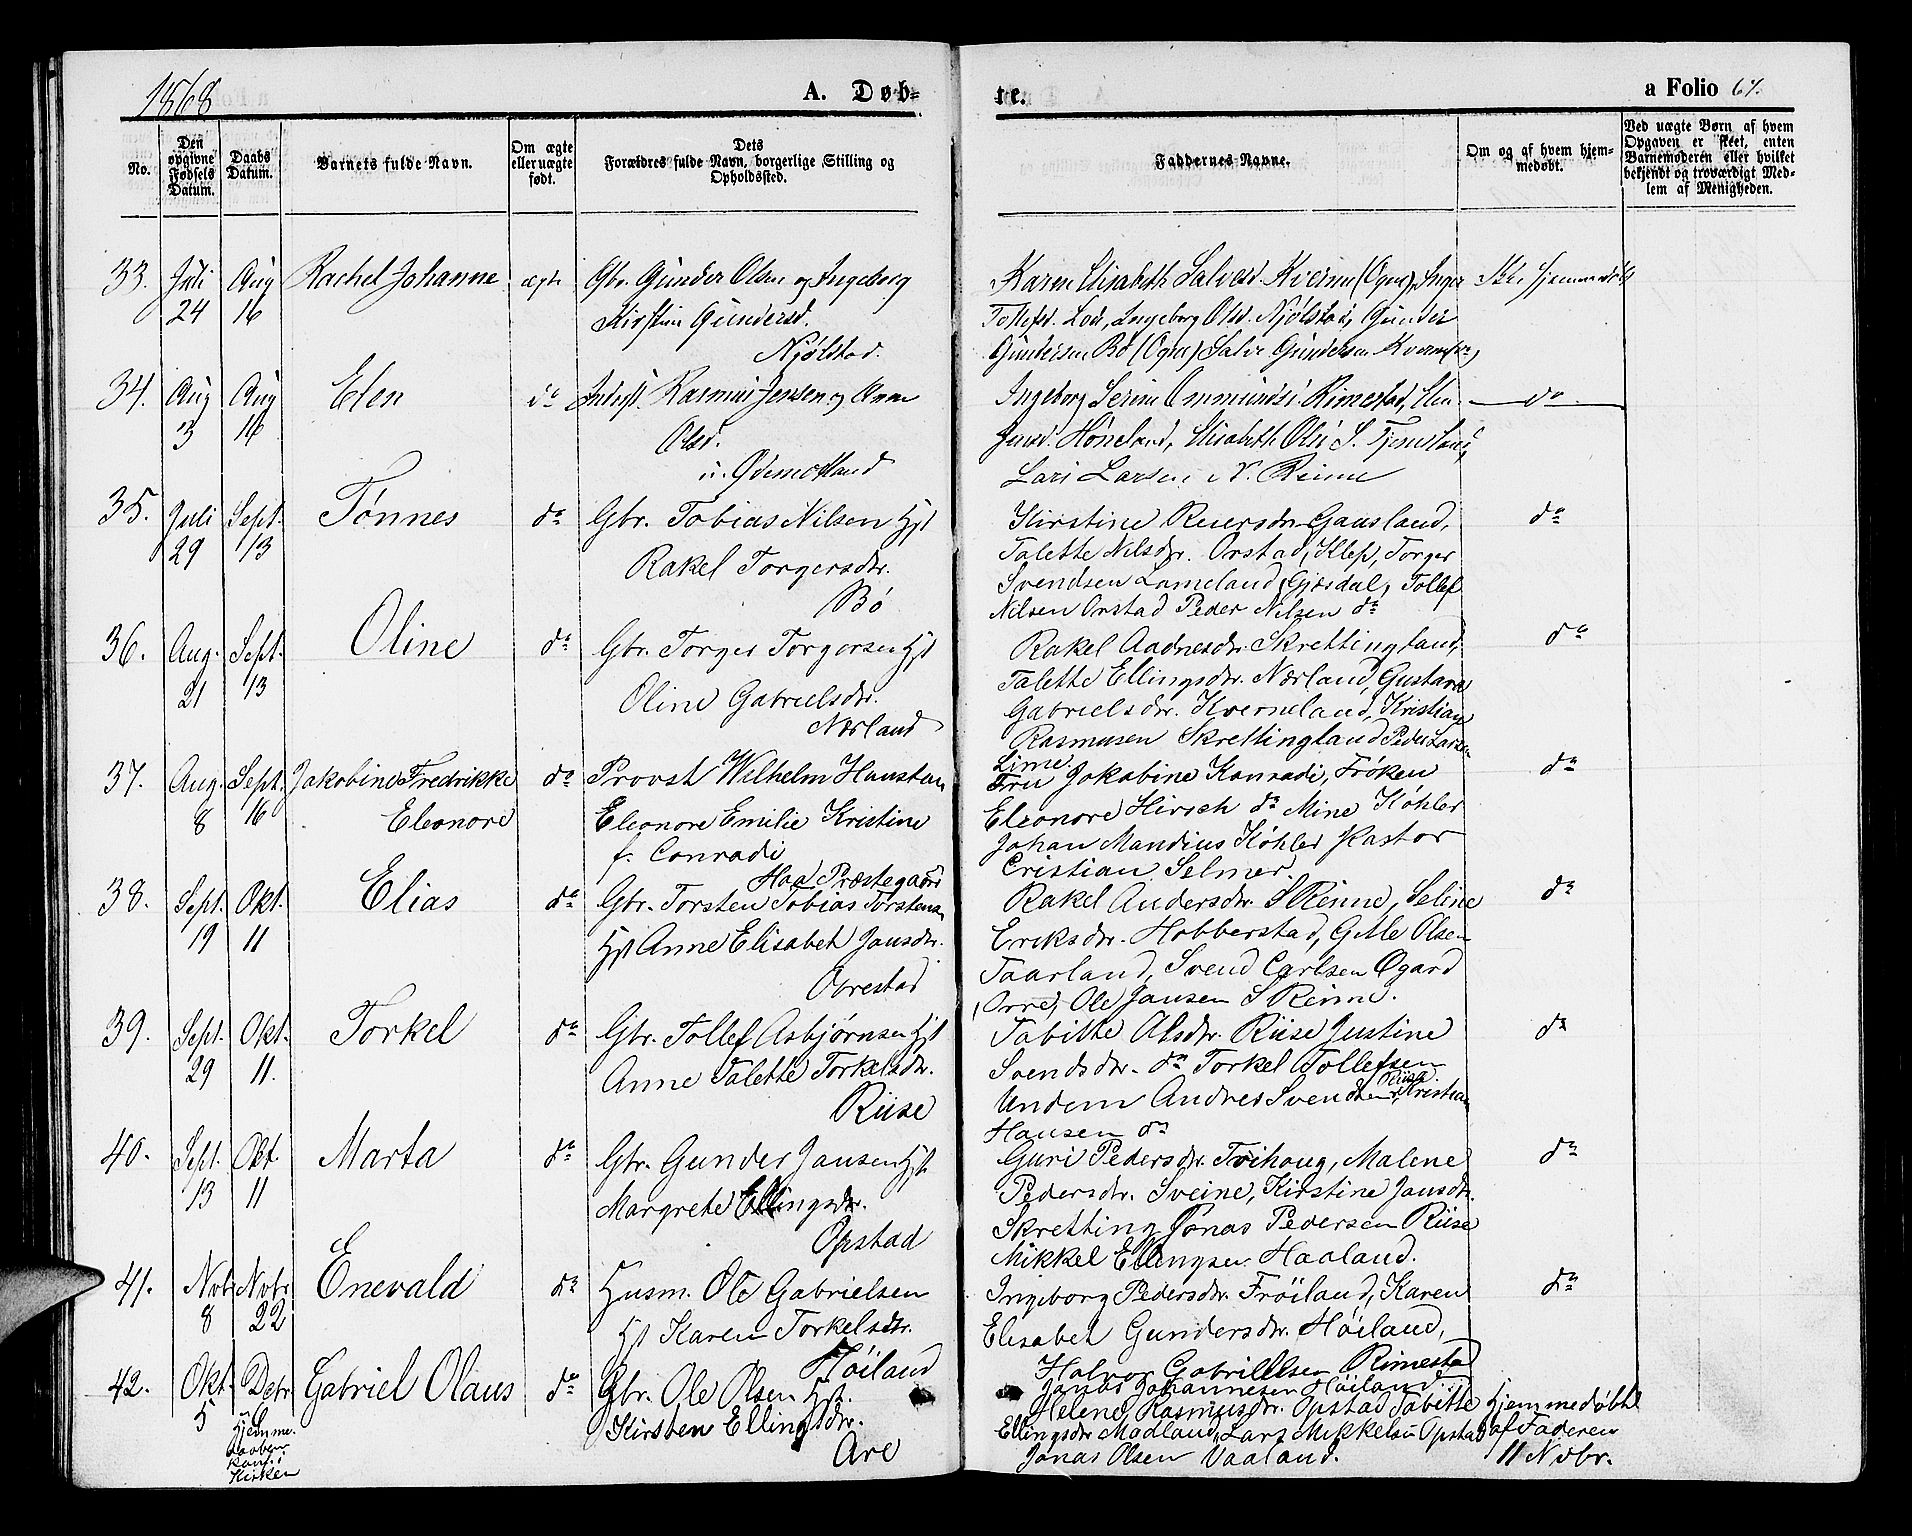 1868
A. Døb-
te.
a Folio 67.
No.
Den opgivne Fødsels Datum.
Daabs Datum.
Barnets fulde Navn.
Om ægte eller uægte født.
Dets Forældres fulde Navn, borgerlige Stilling og Opholdssted.
Faddernes Navne.
Om og af hvem hjemmedøbt.
Ved uægte Børn af hvem Opgaven er skeet, enten Barnemoderen eller hvilket bekjendt og troværdigt Medlem af Menigheden.
33. Juli 24 Aug 16 Rachel Johanne ægte Gbr. Gunder Olsen og Ingeborg
Kirstine Gundersd.
Njølstad.
Karen Elisabeth Salvesd. Kverme (Ogne), Inger
Tollefsd. Lode, Ingeborg Olsd. Njølstad, Gunder
Gundersen Bø (Ogne) Salve Gundersen
Ikke hjemmedøbt
34. Aug 3 Aug 16 Elen do Rasmus Jensen og Anne
Olsd.
Ødemotland
Ingeborg Serine Ommundsd. Rimestad, Elen
Jensd. Høneland, Elisabeth Olsd. S. Fjemestad,
Lars Larsen N. Reime
do
35. Juli 29 Sept. 13 Tønnes do Gbr. Tobias Nilsen Hst
Rakel Torgersdtr.
Bø
Kirstine Reiersdtr. Gausland,
Talette Nilsdtr. Orstad, Klep, Torger
Svendsen Limeland, Gjæsdal, Tollef
Nilsen Orstad Peder Nilsen do
do
36. Aug. 21 Sept. 13 Oline do Gbr. Torger Torgersen Hst
Oline Gabrielsdtr.
Nærland
Rakel Aadnesdtr. Skrettingland,
Talette Ellingsdtr. Nærland, Gustava
Gabrielsdtr. Kverneland, Kristian
Rasmusen Skrettingland Peder Larsen
Lime.
do
37. Aug. 8 Sept. 16 Jakobine Fredrikke
Eleonore
do Provst Wilhelm Hansteen
Eleonore Emilie Kristine
f. Conradi
Haa Præstegaard
Fru Jakobine Konradi, Frøken
Eleonore Hirsch do Mine Køhler
Johan Mandius Køhler Pastor
Cristian Selmer.
do
38. Sept. 19 Okt. 11 Elias do Gbr. Torsten Tobias Torstensen
Hst Anne Elisabet Jansdtr.
Obrestad
Rakel Andersdtr. S Reime, Seline
Eriksdtr. Hobberstad, Gitle Olsen
Taarland, Svend Carlsen Øgard
(Orre), Ole Jansen S Reime.
do
39. Sept. 29 Okt. 11. Torkel do Gbr. Tollef Asbjørnsen Hst
Anne Talette Torkelsdtr.
Riise
Tabitte Alsdtr. Riise Justine
Svendsdtr. do Torkel Tollefsen
Undem Andres Svendsen Riise, Kristian
Hansen do
do
40. Sept. 13 Okt. 11 Marta do Gbr. Gunder Jansen Hst
Margrete Ellingsdtr.
Opstad
Guri Pedersdtr. Tvihoug, Malene
Pedersdtr. Sveine, Kirstine Jansdtr.
Skretting Jonas Pedersen Riise
Mikkel Ellingsen Haaland.
do
41. Nvbr 8 Nvbr 22 Enevald do Husm. Ole Gabrielsen
Hst Karen Torkelsdtr.
Høiland
Ingeborg Pedersdtr. Frøiland, Karen
Elisabet Gundersdtr. Høiland,
Halvor Gabrielsen Rimestad
Jonas Johannesen Høiland
do
42. Okt. 5 Debr Gabriel Olaus do Gbr. Ole Olsen Hst.
Kirsten Ellingsdtr.
Are
Hjemme-
daaben
kom i
Kirken
Helene Rasmusdtr. Opstad Tabitte
Ellingsdtr Madland, Lars Mikkelsen Opstad
Jonas Olsen Vaaland.
Hjemmedøbt
af Faderen
11 Nvbr.